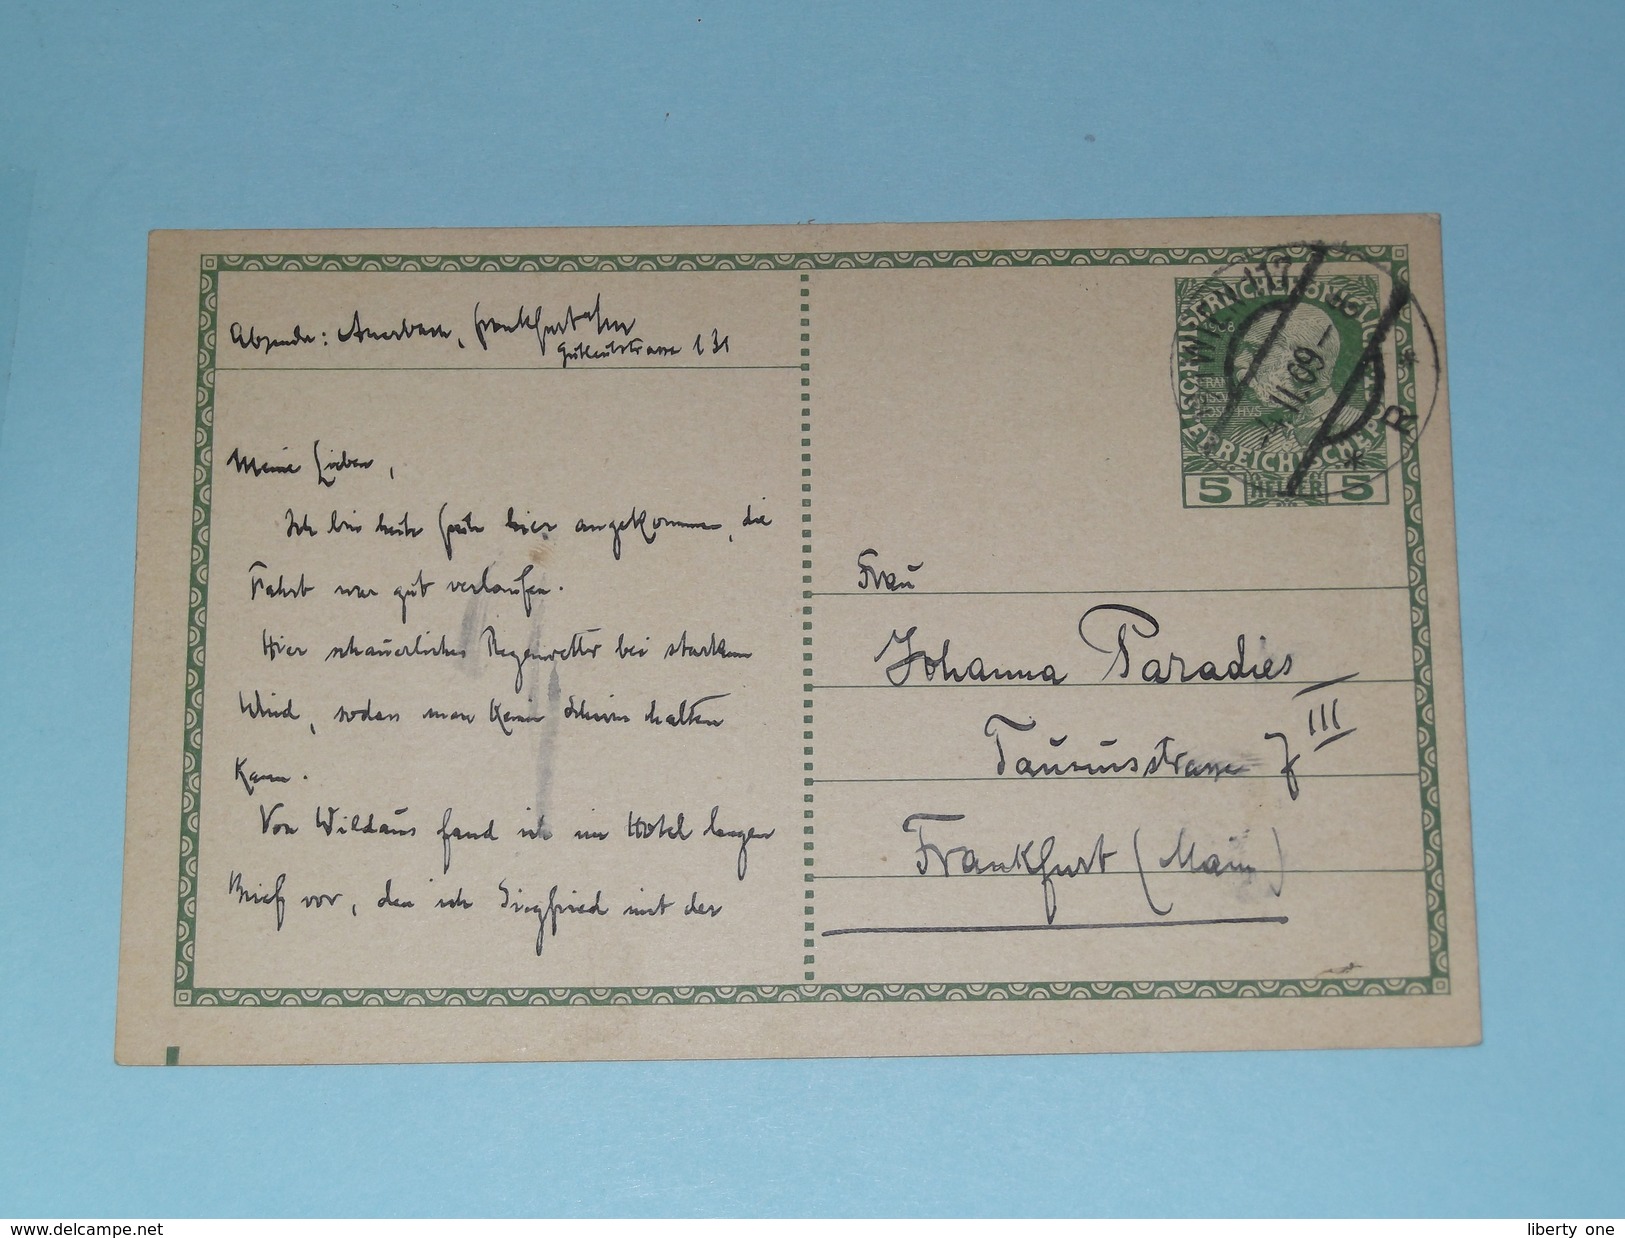 Absender: Auerbach, Frankfurt a/M
Gutleutstrasse 131
Meine Lieben,
Ich bin heute früh hier angekommen, die
Fahrt war gut verlaufen.
Hier schauerliches Regenwetter bei starkem
Wind, sodass man keinen Schirm halten
kann.
Von Wildaus fand ich im Hotel langen
Brief vor, den ich Siegfried mit der
WIEN 117
II. 09
R
KAISERLICHE KÖNIGLICHE
1908
FRAN
CISCVS
IOSEPHVS
ÖSTERREICHISCHE POST
5 HELLER 5
Frau
Johanna Paradies
Taunusstrasse 7 III
Frankfurt (Main)
www.delcampe.net
liberty one